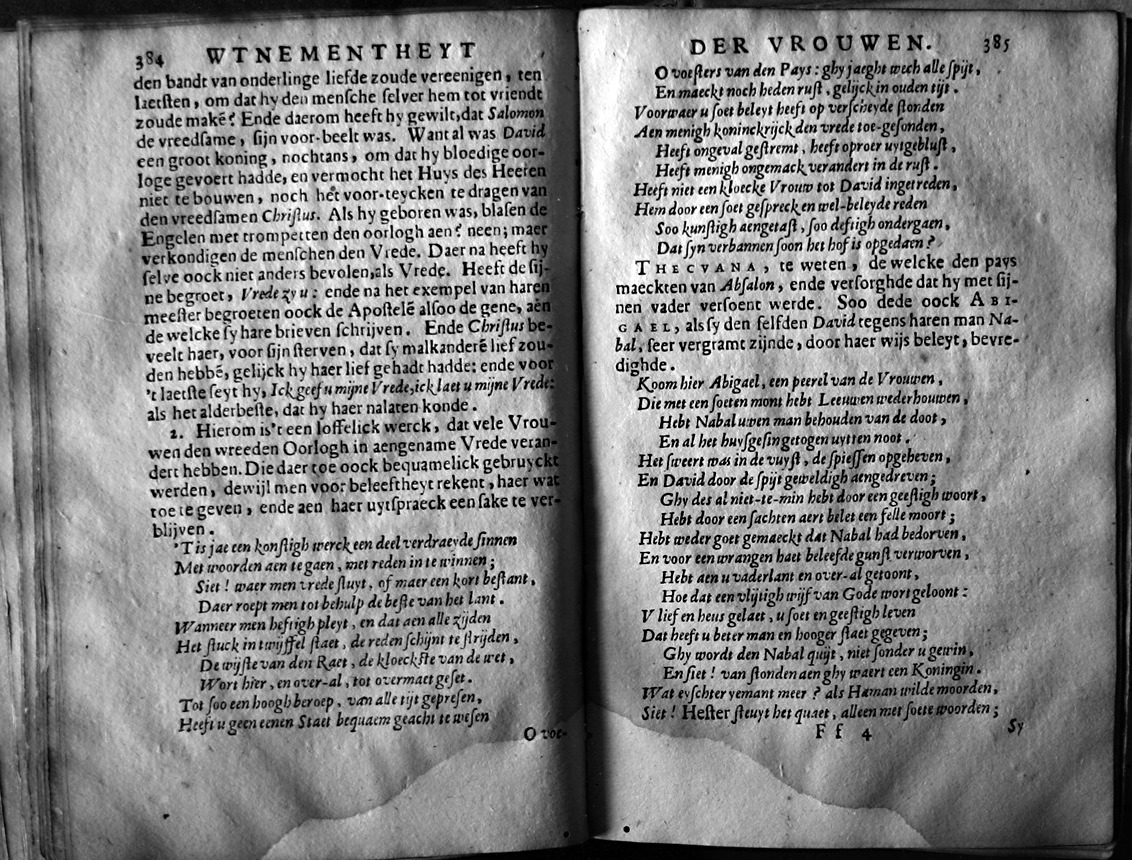 384 WTNEMENTHEYT
den bandt van onderlinge liefde zoude vereenigen, ten
laetsten, om dat hy den mensche selver hem tot vriendt
zoude makē? Ende daerom heeft hy gewilt, dat Salomon
de vreedsame, sijn voor-beelt was. Want al was David
een groot koning, nochtans, om dat hy bloedige oor-
loge gevoert hadde, en vermocht het Huys des Heeren
niet te bouwen, noch het voor-teycken te dragen van
den vreedsamen Christus. Als hy geboren was, blasen de
Engelen met trompetten den oorlogh aen? neen; maer
verkondigen de menschen den Vrede. Daer na heeft hy
selve oock niet anders bevolen, als Vrede. Heeft de sij-
ne begroet, Vrede zy u: ende na het exempel van haren
meester begroeten oock de Apostelē alsoo de gene, aen
de welcke sy hare brieven schrijven. Ende Christus be-
veelt haer, voor sijn sterven, dat sy malkanderē lief zou-
den hebbē, gelijck hy haer lief gehadt hadde: ende voor
't laetste seyt hy, Ick geef u mijne Vrede, ick laet u mijne Vrede:
als het alderbeste, dat hy haer nalaten konde.
2. Hierom is't een loffelick werck, dat vele Vrou-
wen den wreeden Oorlogh in aengename Vrede veran-
dert hebben. Die daer toe oock bequamelick gebruyckt
werden, dewijl men voor beleeftheyt rekent, haer wat
toe te geven, ende aen haer uytspraeck een sake te ver-
blijven.
'Tis jae een konstigh werck een deel verdraeyde sinnen
Met woorden aen te gaen, met reden in te winnen;
Siet! waer men vrede sluyt, of maer een kort bestant,
Daer roept men tot behulp de beste van het lant.
Wanneer men heftigh pleyt, en dat aen alle zijden
Het stuck in twijffel staet, de reden schijnt te strijden,
De wijste van den Raet, de kloeckste van de wet,
Wort hier, en over-al, tot overmaet geset.
Tot soo een hoogh beroep, van alle tijt gepresen,
Heeft u geen eenen Staet bequaem geacht te wesen
O voe-
DER VROUWEN. 385
O voesters van den Pays: ghy jaeght wech alle spijt,
En maeckt noch heden rust, gelijck in ouden tijt.
Voorwaer u soet beleyt heeft op verscheyde stonden
Aen menigh koninckrijck den vrede toe-gesonden,
Heeft ongeval gestremt, heeft oproer uytgeblust,
Heeft menigh ongemack verandert in de rust.
Heeft niet een kloecke Vrouw tot David ingetreden,
Hem door een soet gespreck en wel-beleyde reden
Soo kunstigh aengetast, soo deftigh ondergaen,
Dat syn verbannen soon het hof is opgedaen?
THECVANA, te weten, de welcke den pays
maeckten van Absalon, ende versorghde dat hy met sij-
nen vader versoent werde. Soo dede oock ABI-
GAEL, als sy den selfden David tegens haren man Na-
bal, seer vergramt zijnde, door haer wijs beleyt, bevre-
dighde.
Koom hier Abigael, een peerel van de Vrouwen,
Die met een soeten mont hebt Leeuwen wederhouwen,
Hebt Nabal uwen man behouden van de doot,
En al het huysgesin getogen uytten noot.
Het sweert was in de vuyst, de spiessen opgeheven,
En David door de spijt geweldigh aengedreven;
Ghy des al niet-te-min hebt door een geestigh woort,
Hebt door een sachten aert belet een felle moort;
Hebt weder goet gemaeckt dat Nabal had bedorven,
En voor een wrangen haet beleefde gunst verworven,
Hebt aen u vaderlant en over-al getoont,
Hoe dat een vlijtigh wijf van Gode wort geloont:
V lief en heus gelaet, u soet en geestigh leven
Dat heeft u beter man en hooger staet gegeven;
Ghy wordt den Nabal quijt, niet sonder u gewin,
En siet! van stonden aen ghy waert een Koningin.
Wat eyschter yemant meer? als Haman wilde moorden,
Siet! Hester steuyt het quaet, alleen met soete woorden;
Ff 4 Sy